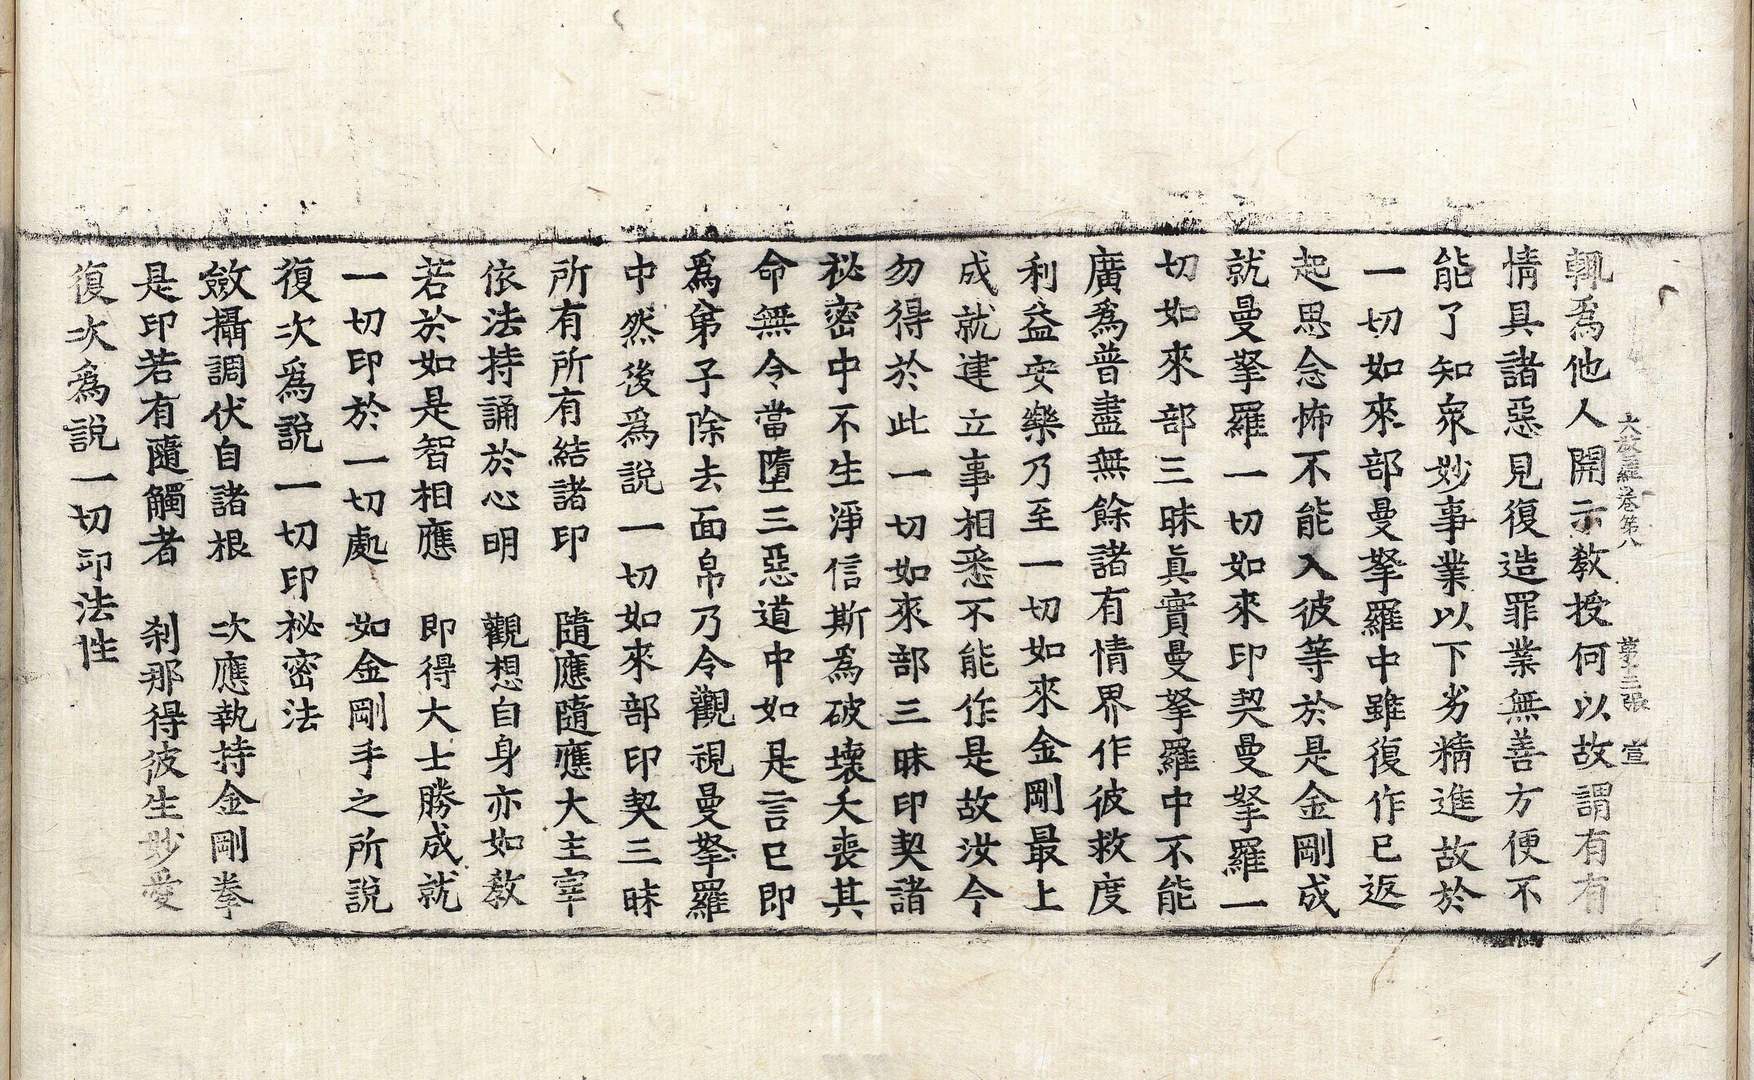 大教羅卷第八 第十三張 宣
輒爲他人開示教授何以故謂有有
情具諸惡見復造罪業無善方便不
能了知衆妙事業以下劣精進故於
一切如來部曼拏羅中雖復作已返
起思念怖不能入彼等於是金剛成
就曼拏羅一切如來印契曼拏羅一
切如來部三昧眞實曼拏羅中不能
廣爲普盡無餘諸有情界作彼救度
利益安樂乃至一切如來金剛最上
成就建立事相悉不能作是故汝今
勿得於此一切如來部三昧印契諸
祕密中不生淨信斯爲破壞夭喪其
命無令當墮三惡道中如是言已即
爲弟子除去面帛乃令觀視曼拏羅
中然後爲說一切如來部印契三昧
所有所有結諸印 隨應隨應大主宰
依法持誦於心明 觀想自身亦如教
若於如是智相應 即得大士勝成就
一切印於一切處 如金剛手之所說
復次爲說一切印祕密法
斂攝調伏自諸根 次應執持金剛拳
是印若有隨觸者 刹那得彼生妙愛
復次爲說一切印法性